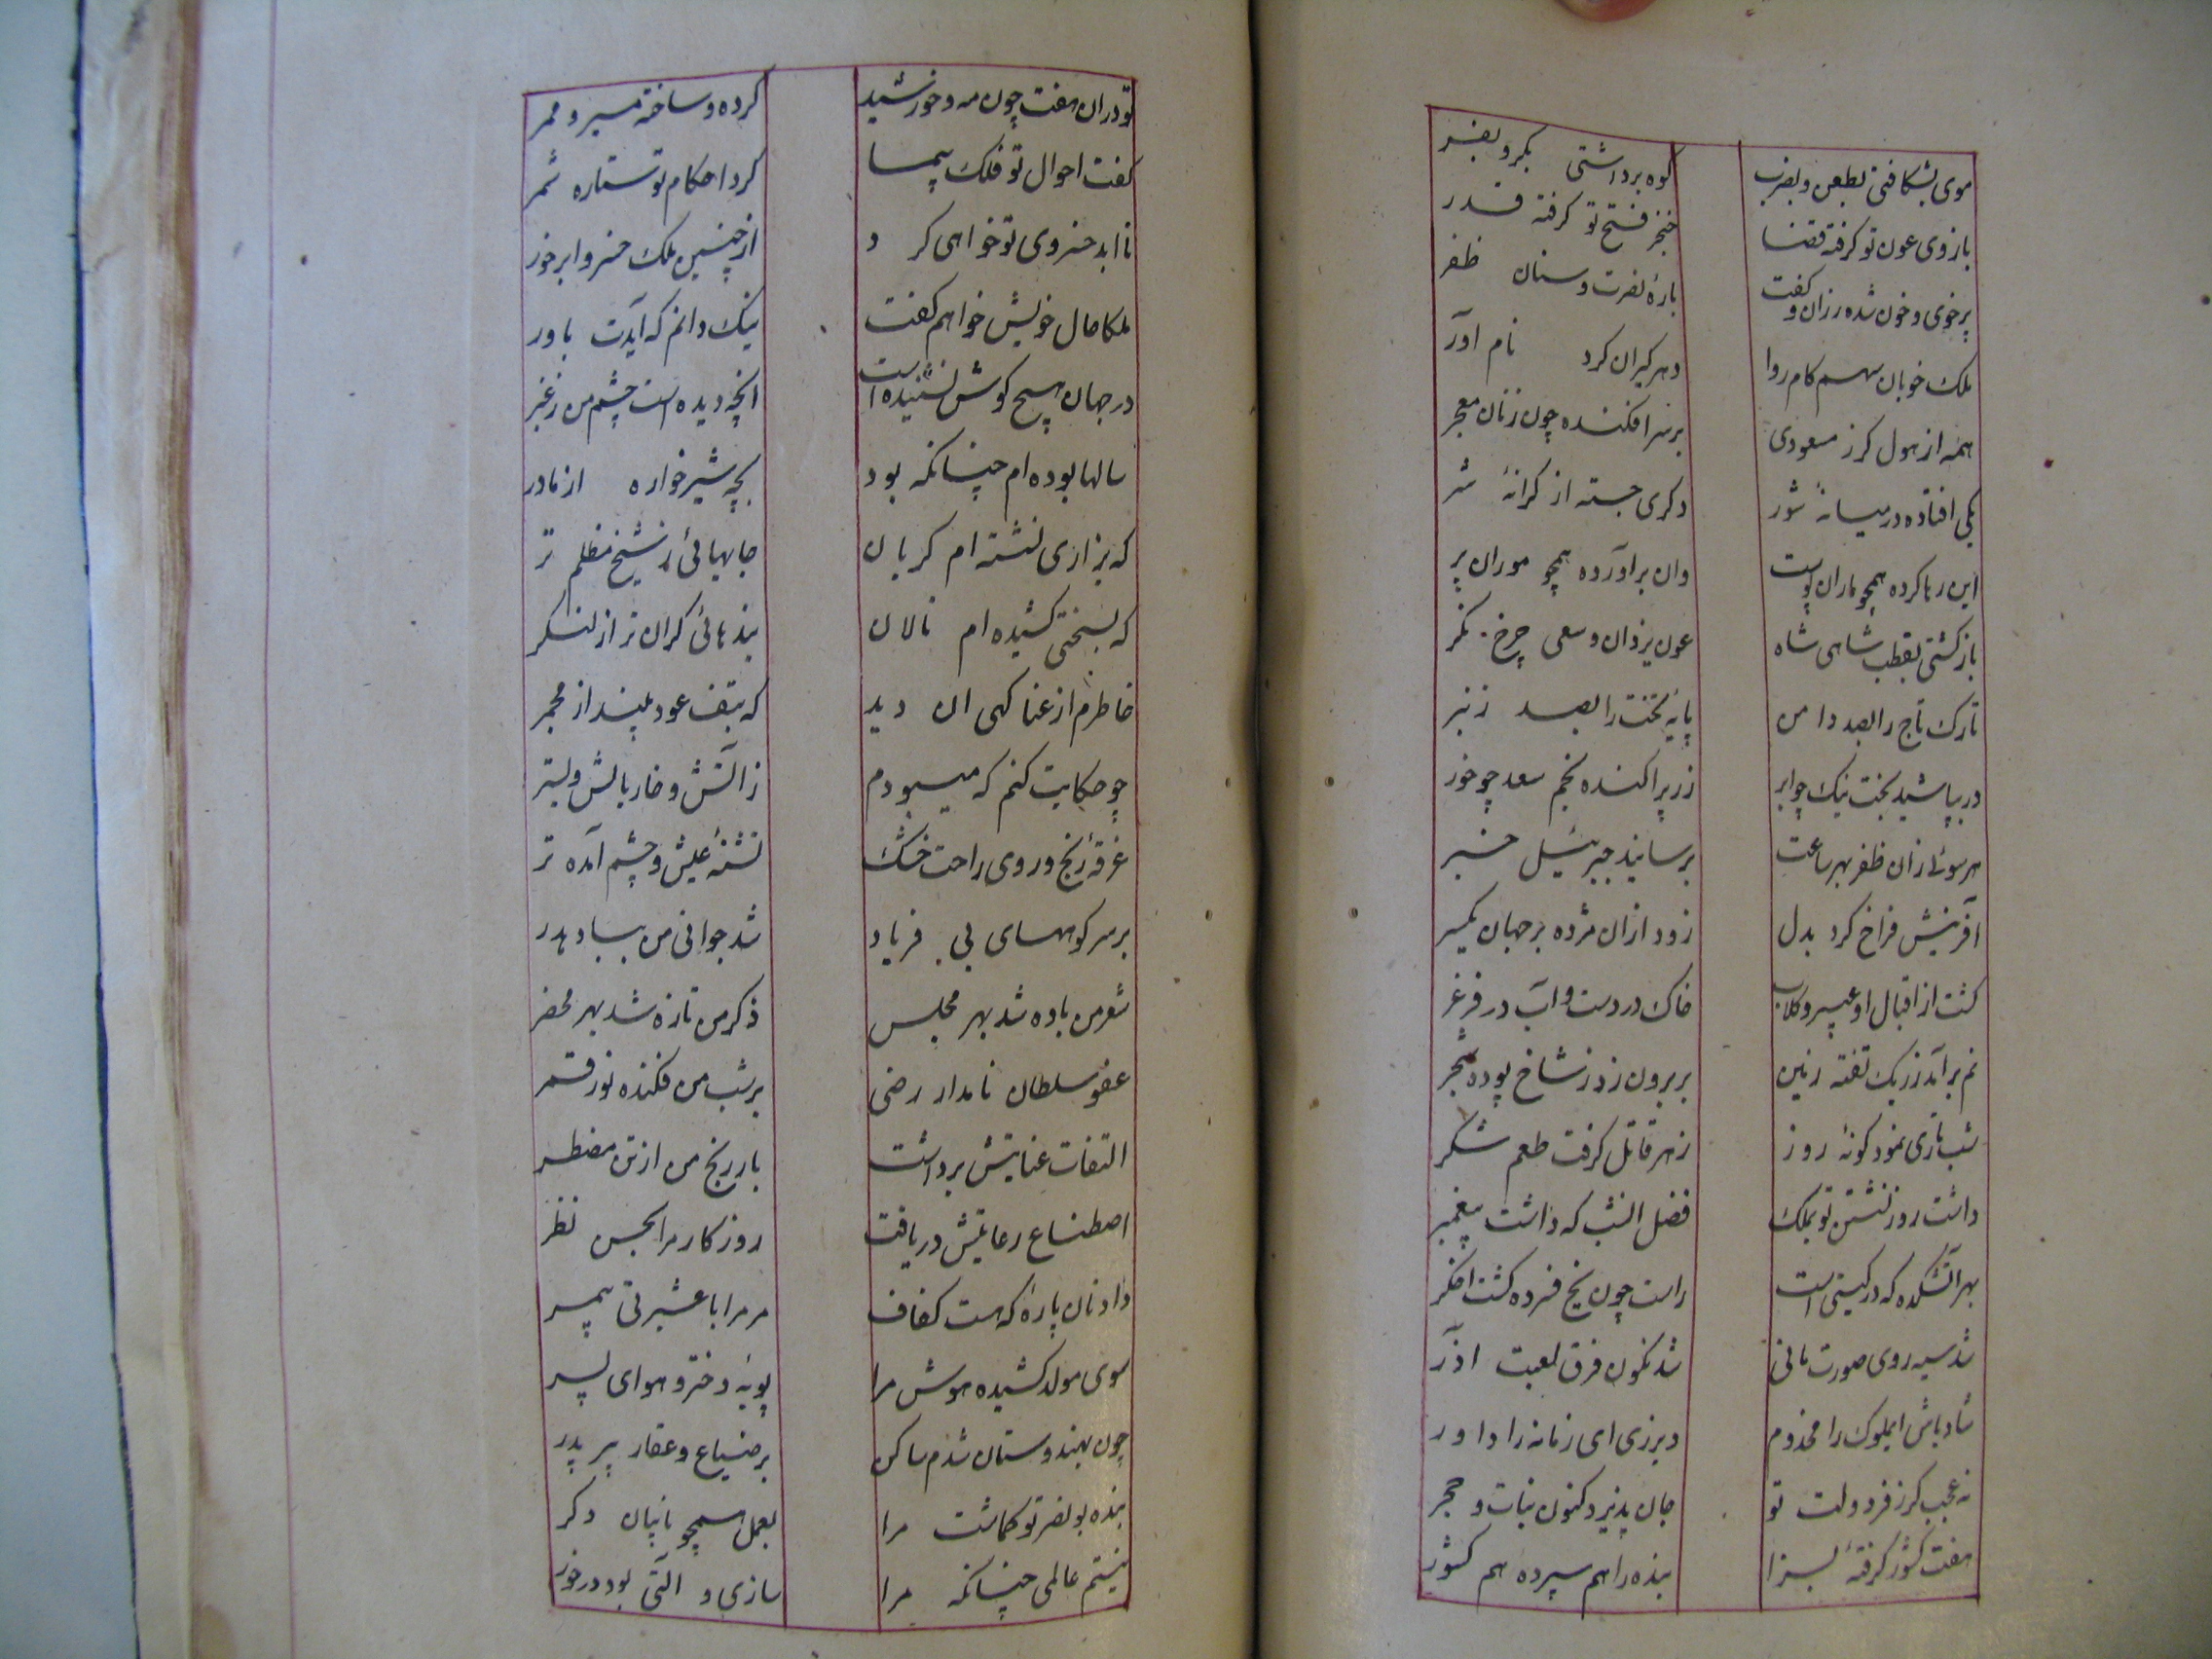 موی بشکافتی بطعن و بضرب کوه برداشتی بکر و بفر
بازوی عون تو گرفته قضا خنجر فتح تو گرفته قدر
پر خوی و خون شده رزان و کفت باره نصرت و سنان ظفر
ملک خوبان سهم کام روا دهر گیران گرد نام آور
همه از هول گرز مسعودی بر سر افکنده چون زنان معجر
یکی افتاده در میانهٔ شور دگری جسته از کرانهٔ شر
این رها کرده همچو ماران پوست وان برآورده همچو موران پر
بازگشتی بقطب شاهی شاه عون یزدان و سعی چرخ نگر
تارک تاج را بصد دامن پایه تخت را بصد زنبر
در بپاشید بخت نیک چو ابر زر پراکنده نجم سعد چو خور
هر سوئی زان ظفر بهر ساعت برسانید جبرئیل خبر
آفرینش فراخ کرد بدل زود ازان مژده بر جهان یکسر
گشت از اقبال او عبیر و گلاب خاک در دست و آب در فرغر
نم برآمد ز ریگ تفته زمین بر برون زد ز شاخ پوده شجر
شب تاری نمود گونهٔ روز زهر قاتل گرفت طعم شکر
داشت روز نشستن تو بملک فضل آنشب که داشت پیغمبر
بهر آتشکده که در گیتی است راست چون یخ فسرده گشت اخگر
شد سیه روی صورت مانی شد نگون فرق لعبت آذر
شاد باش ایملوک را مخدوم دیر زی ای زمانه را داور
نه عجب کرز فر دولت تو جان پذیرد کنون نبات و حجر
هفت کشور گرفتهٔ بسزا بنده را هم سپرده هم کشور
تو دران هفت چون مه و خورشید کرده و ساخته مسیر و ممر
گفت احوال تو فلک پیما کرد احکام تو ستاره شمر
تا ابد خسروی تو خواهی کرد از چنین ملک خسروا برخور
ملکا حال خویش خواهم گفت نیک دانم که آیدت باور
در جهان هیچ گوش نشنیده است آنچه دیده است چشم من ز غبر
سالها بوده ام چنانکه بود بچه شیرخواره از مادر
که بزاری نشسته ام گریان جایهائی ز شیخ مظلم تر
که بسختی کشیده ام نالان بندهائی گران تر از لنگر
خاطرم از عنا گهی ان دید که بتف عود بیند از مجمر
چو حکایت کنم که میبودم ز آتش و خار بالش و بستر
غرقهٔ رنج و روی راحت خشک تشنهٔ عیش و چشم آمده تر
بر سر کوههای بی فریاد شد جوانی من بباد هدر
شعر من باده شد بهر مجلس ذکر من تازه شد بهر محضر
عفو سلطان نامدار رضی بر شب من فکنده نور قمر
التفات عنایتش برداشت بار رنج من از تن مضطر
اصطناع رعایتش دریافت روزگار مرا بحسن نظر
داد نان پارهٔ که هست کفاف مر مرا با عشیرتی بیمر
سوی مولد کشیده هوش مرا پویه دختر و هوای پسر
چون بهندوستان شدم ساکن بر ضیاع و عقار پیر پدر
بنده بونصر تو گماشت مرا بعمل همچو نایبان دگر
نیستم عالمی چنانکه مرا سازی و آلتی بود در خور